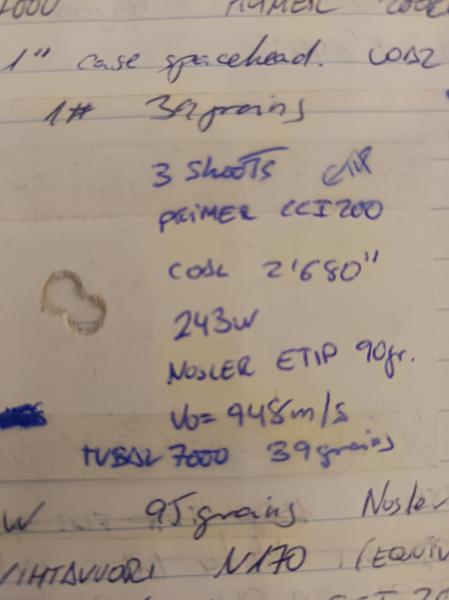 7000 PRIMER 200
1" case spacehead. COAL
1# 39grains
3 shoots
PRIMER CCI200
COAL 2'680"
243W
NOSLER ETIP 90gr.
V0= 948m/s
TUBAL 7000 39grains
W 95grains Nosler
VIHTAVUORI N170 (EQUIV